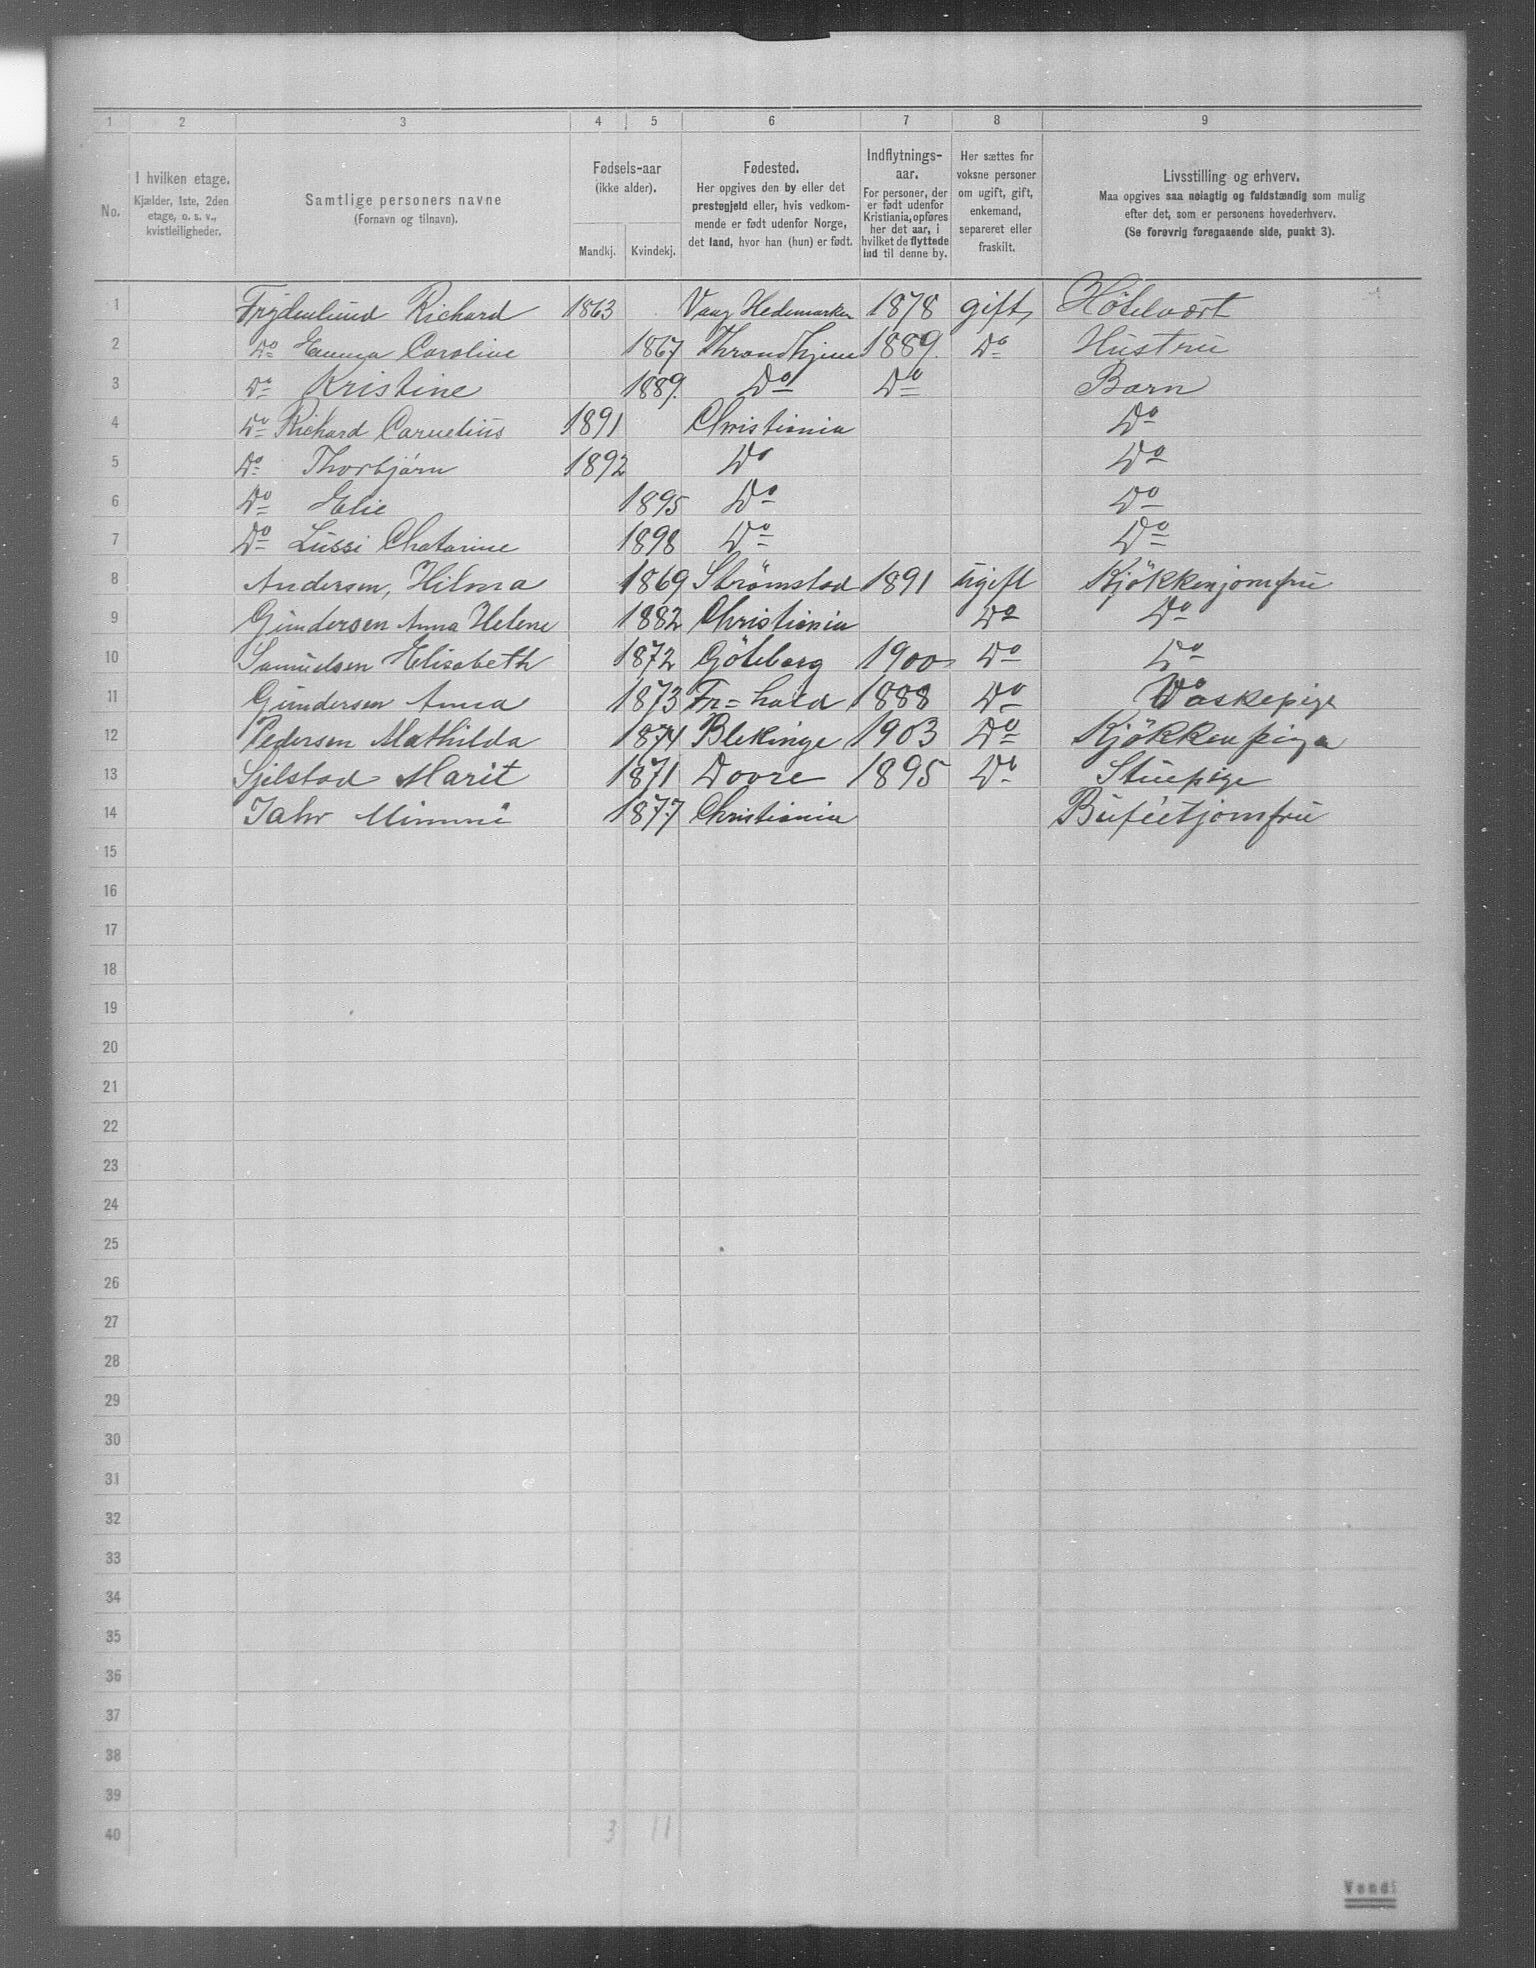 1 2 3 4 5 6 7 8 9
No.
I hvilken etage.
Kjælder, 1ste, 2den
etage, o. s. v.,
kvistleiligheder.
Samtlige personers navne
(Fornavn og tilnavn).
Fødsels-aar
(ikke alder).
Mandkj. Kvindekj.
Fødested.
Her opgives den by eller det
prestegjeld eller, hvis vedkom-
mende er født udenfor Norge,
det land, hvor han (hun) er født.
Indflytnings-
aar.
For personer, der
er født udenfor
Kristiania, opføres
her det aar, i
hvilket de flyttede
ind til denne by.
Her sættes for
voksne personer
om ugift, gift,
enkemand,
separeret eller
fraskilt.
Livsstilling og erhverv.
Maa opgives saa nøiagtig og fuldstændig som mulig
efter det, som er personens hovederhverv.
(Se forøvrig foregaaende side, punkt 3).
1 Frydenlund Richard 1863 Vang Hedemarken 1878 gift Hôtelvært
2 Do Emma Caroline 1867 Throndhjem 1889. Do Hustru
3 Do Kristine 1889. Do Do Barn
4 Do Richard Cornelius 1891 Christiania Do
5 Do Thorbjørn 1892 Do Do
6 Do Elie 1895 Do Do
7 Do Lussi Chatarine 1898 Do Do
8 Andersen, Hilma 1869 Strømstad 1891 ugift Kjökkenjomfru
9 Gundersen Anna Helene 1882 Christiania Do Do
10 Samuelsen Elisabeth 1872 Göteborg 1900 Do Do
11 Gundersen Anna 1873 Fr=hald 1888 Do Vaskepige
12 Pedersen Mathilda 1874 Blekinge 1903 Do Kjökkenpiga
13 Sjelstad Marit 1871 Dovre 1895 Do Stuepige
14 Jahr Mimmi 1877 Christiania Bufeetjomfru
15
16
17
18
19
20
21
22
23
24
25
26
27
28
29
30
31
32
33
34
35
36
37
38
39
40 3 11
Vend!